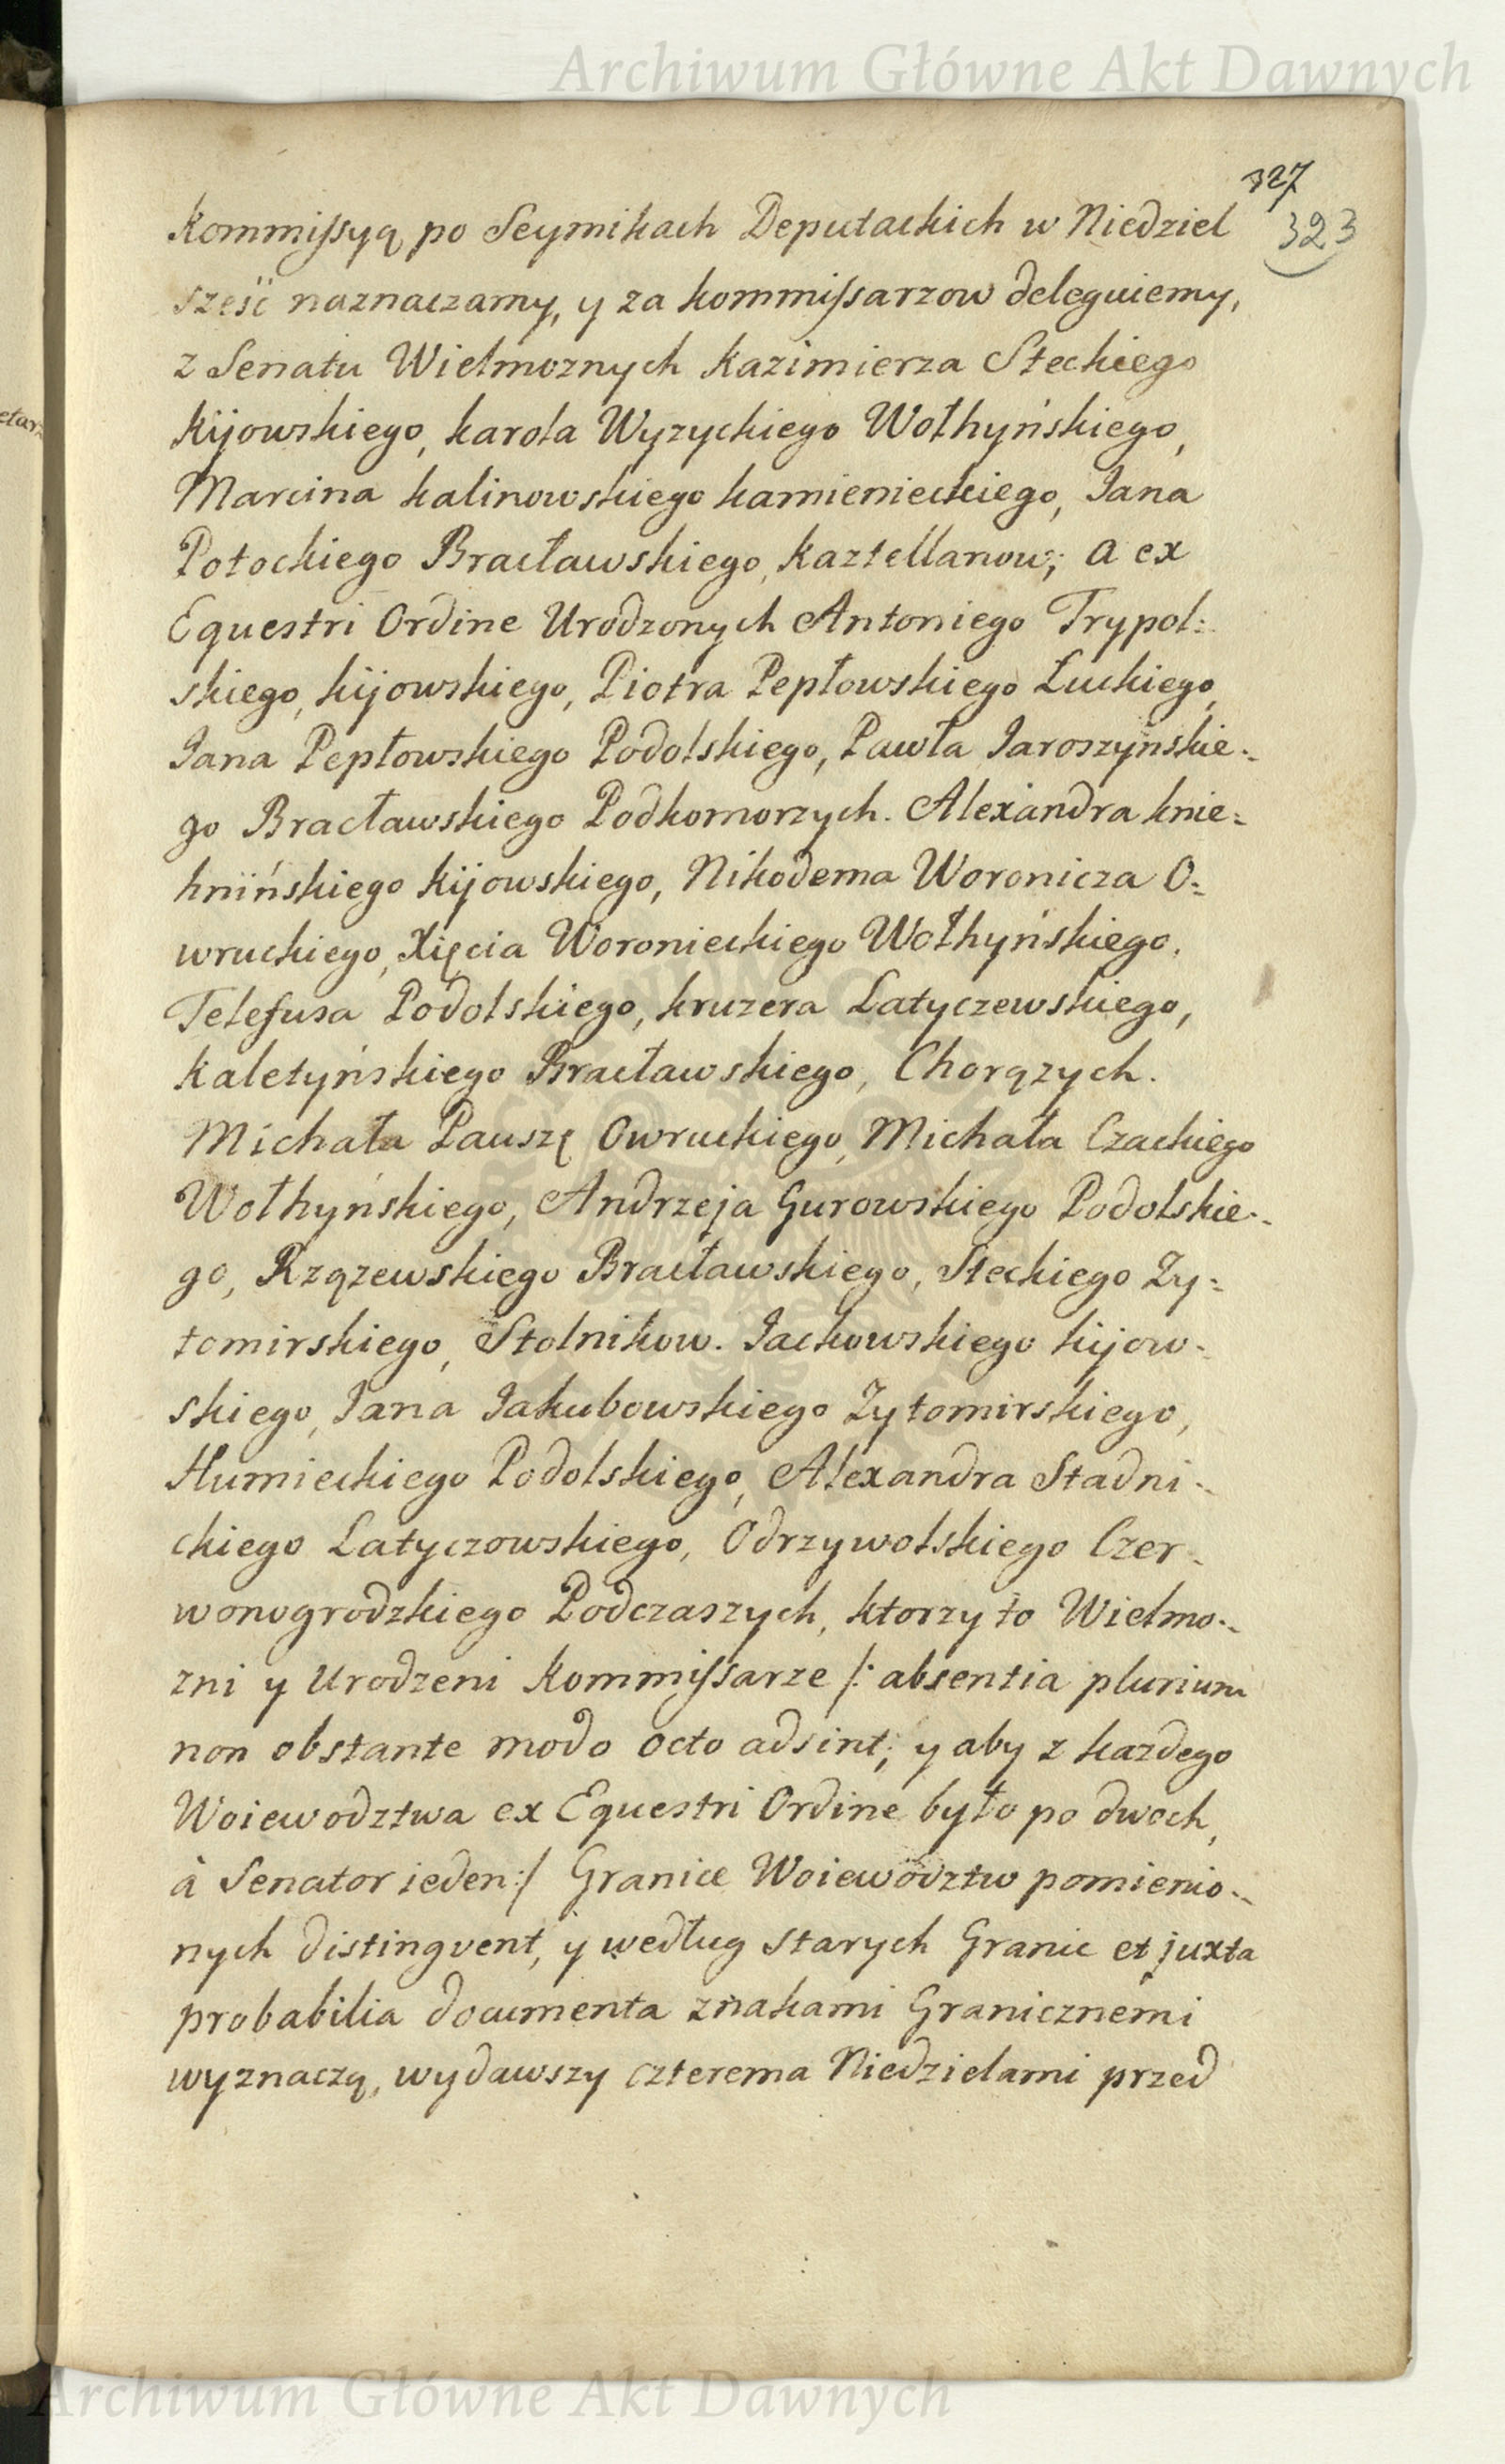 Archiwum Główne Akt Dawnych
327
323
kommissyą po Seymikach Deputackich w Niedziel
sześć naznaczamy, y za kommissarzow deleguiemy,
z Senatu Wielmoznych Kazimierza Steckiego
Kijowskiego, Karola Wyzyckiego Wołhyńskiego,
Marcina Kalinowskiego Kamienieckiego, Jana
Potockiego Bracławskiego, Kasztellanow; a ex
Equestri Ordine Urodzonych Antoniego Trypol:
skiego, Kijowskiego, Piotra Pepłowskiego Łuckiego,
Jana Pepłowskiego Podolskiego, Pawła Jaroszyńskie:
go Bracławskiego Podkomorzych. Alexandra Knie:
hnińskiego Kijowskiego, Nikodema Woronicza O:
wruckiego, Xięcia Woronieckiego Wołhyńskiego,
Telefusa Podolskiego, Kruzera Latyczewskiego,
Kaletyńskiego Bracławskiego, Chorązych.
Michała Pauszę Owruckiego, Michała Czackiego
Wołhyńskiego, Andrzeja Gurowskiego Podolskie:
go, Rzązewskiego Bracławskiego, Steckiego Zy:
tomirskiego, Stolnikow. Jackowskiego Kijow:
skiego, Jana Jakubowskiego Zytomirskiego,
Humieckiego Podolskiego, Alexandra Stadni:
ckiego Latyczowskiego, Odrzywolskiego Czer:
wonogrodzkiego Podczaszych, ktorzy to Wielmo:
zni y Urodzeni Kommissarze /: absentia plurium
non obstante modo octo adsint; y aby z kazdego
Woiewodztwa ex Equestri Ordine było po dwoch,
à Senator ieden :/ Granice Woiewództw pomienio:
nych distingvent, y według starych Granic et juxta
probabilia documenta znakami Granicznemi
wyznaczą, wydawszy czterema Niedzielami przed
Archiwum Główne Akt Dawnych